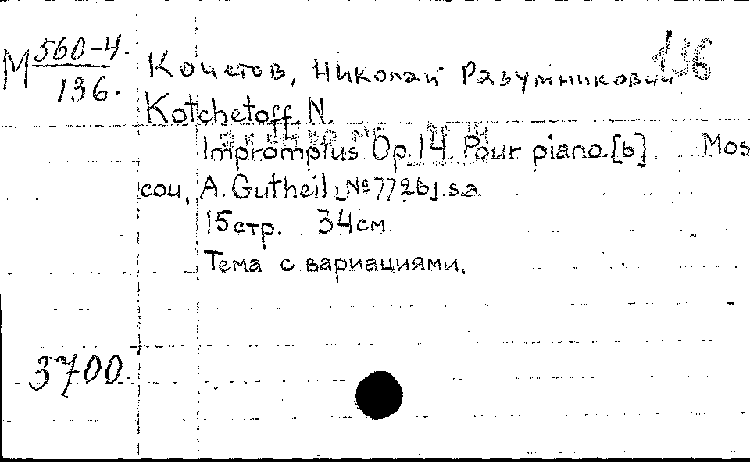 М 560-4. Кочетов, Николай Разумникович 136
136.
Kotchetoff N.
Impromptus Op. 14 Pour piano. [b] Mos
cou, A. Gutheil [№ 7726]. s.a
15 стр. 34 см
Тема с вариациями.
3700